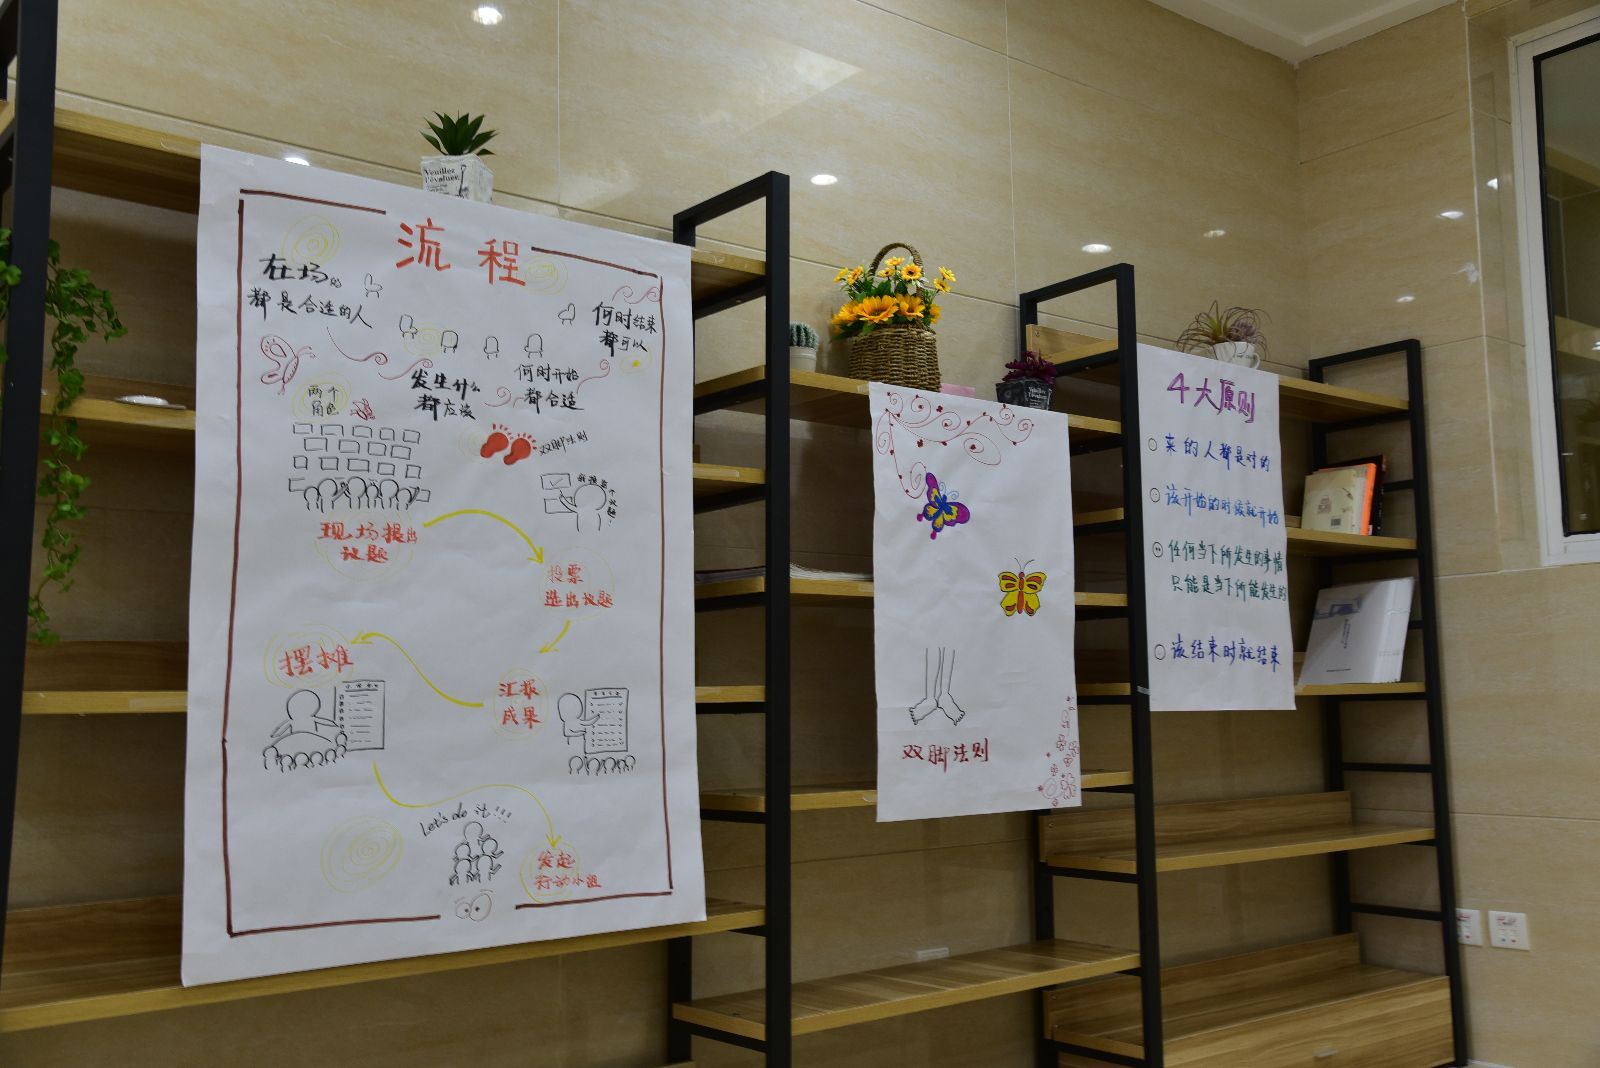 Veuillez
l'évaluer.
流程
在场的
都是合适的人
何时结束
都可以
何时开始
都合适
发生什么
都应该
两个
角色
双脚法则
现场提出
议题
投票
选出议题
摆摊
汇报
成果
Let's do it!!!
发起
行动小组
双脚法则
4大原则
来的人都是对的
该开始的时候就开始
任何当下所发生的事情
只能是当下所能发生的
该结束时就结束